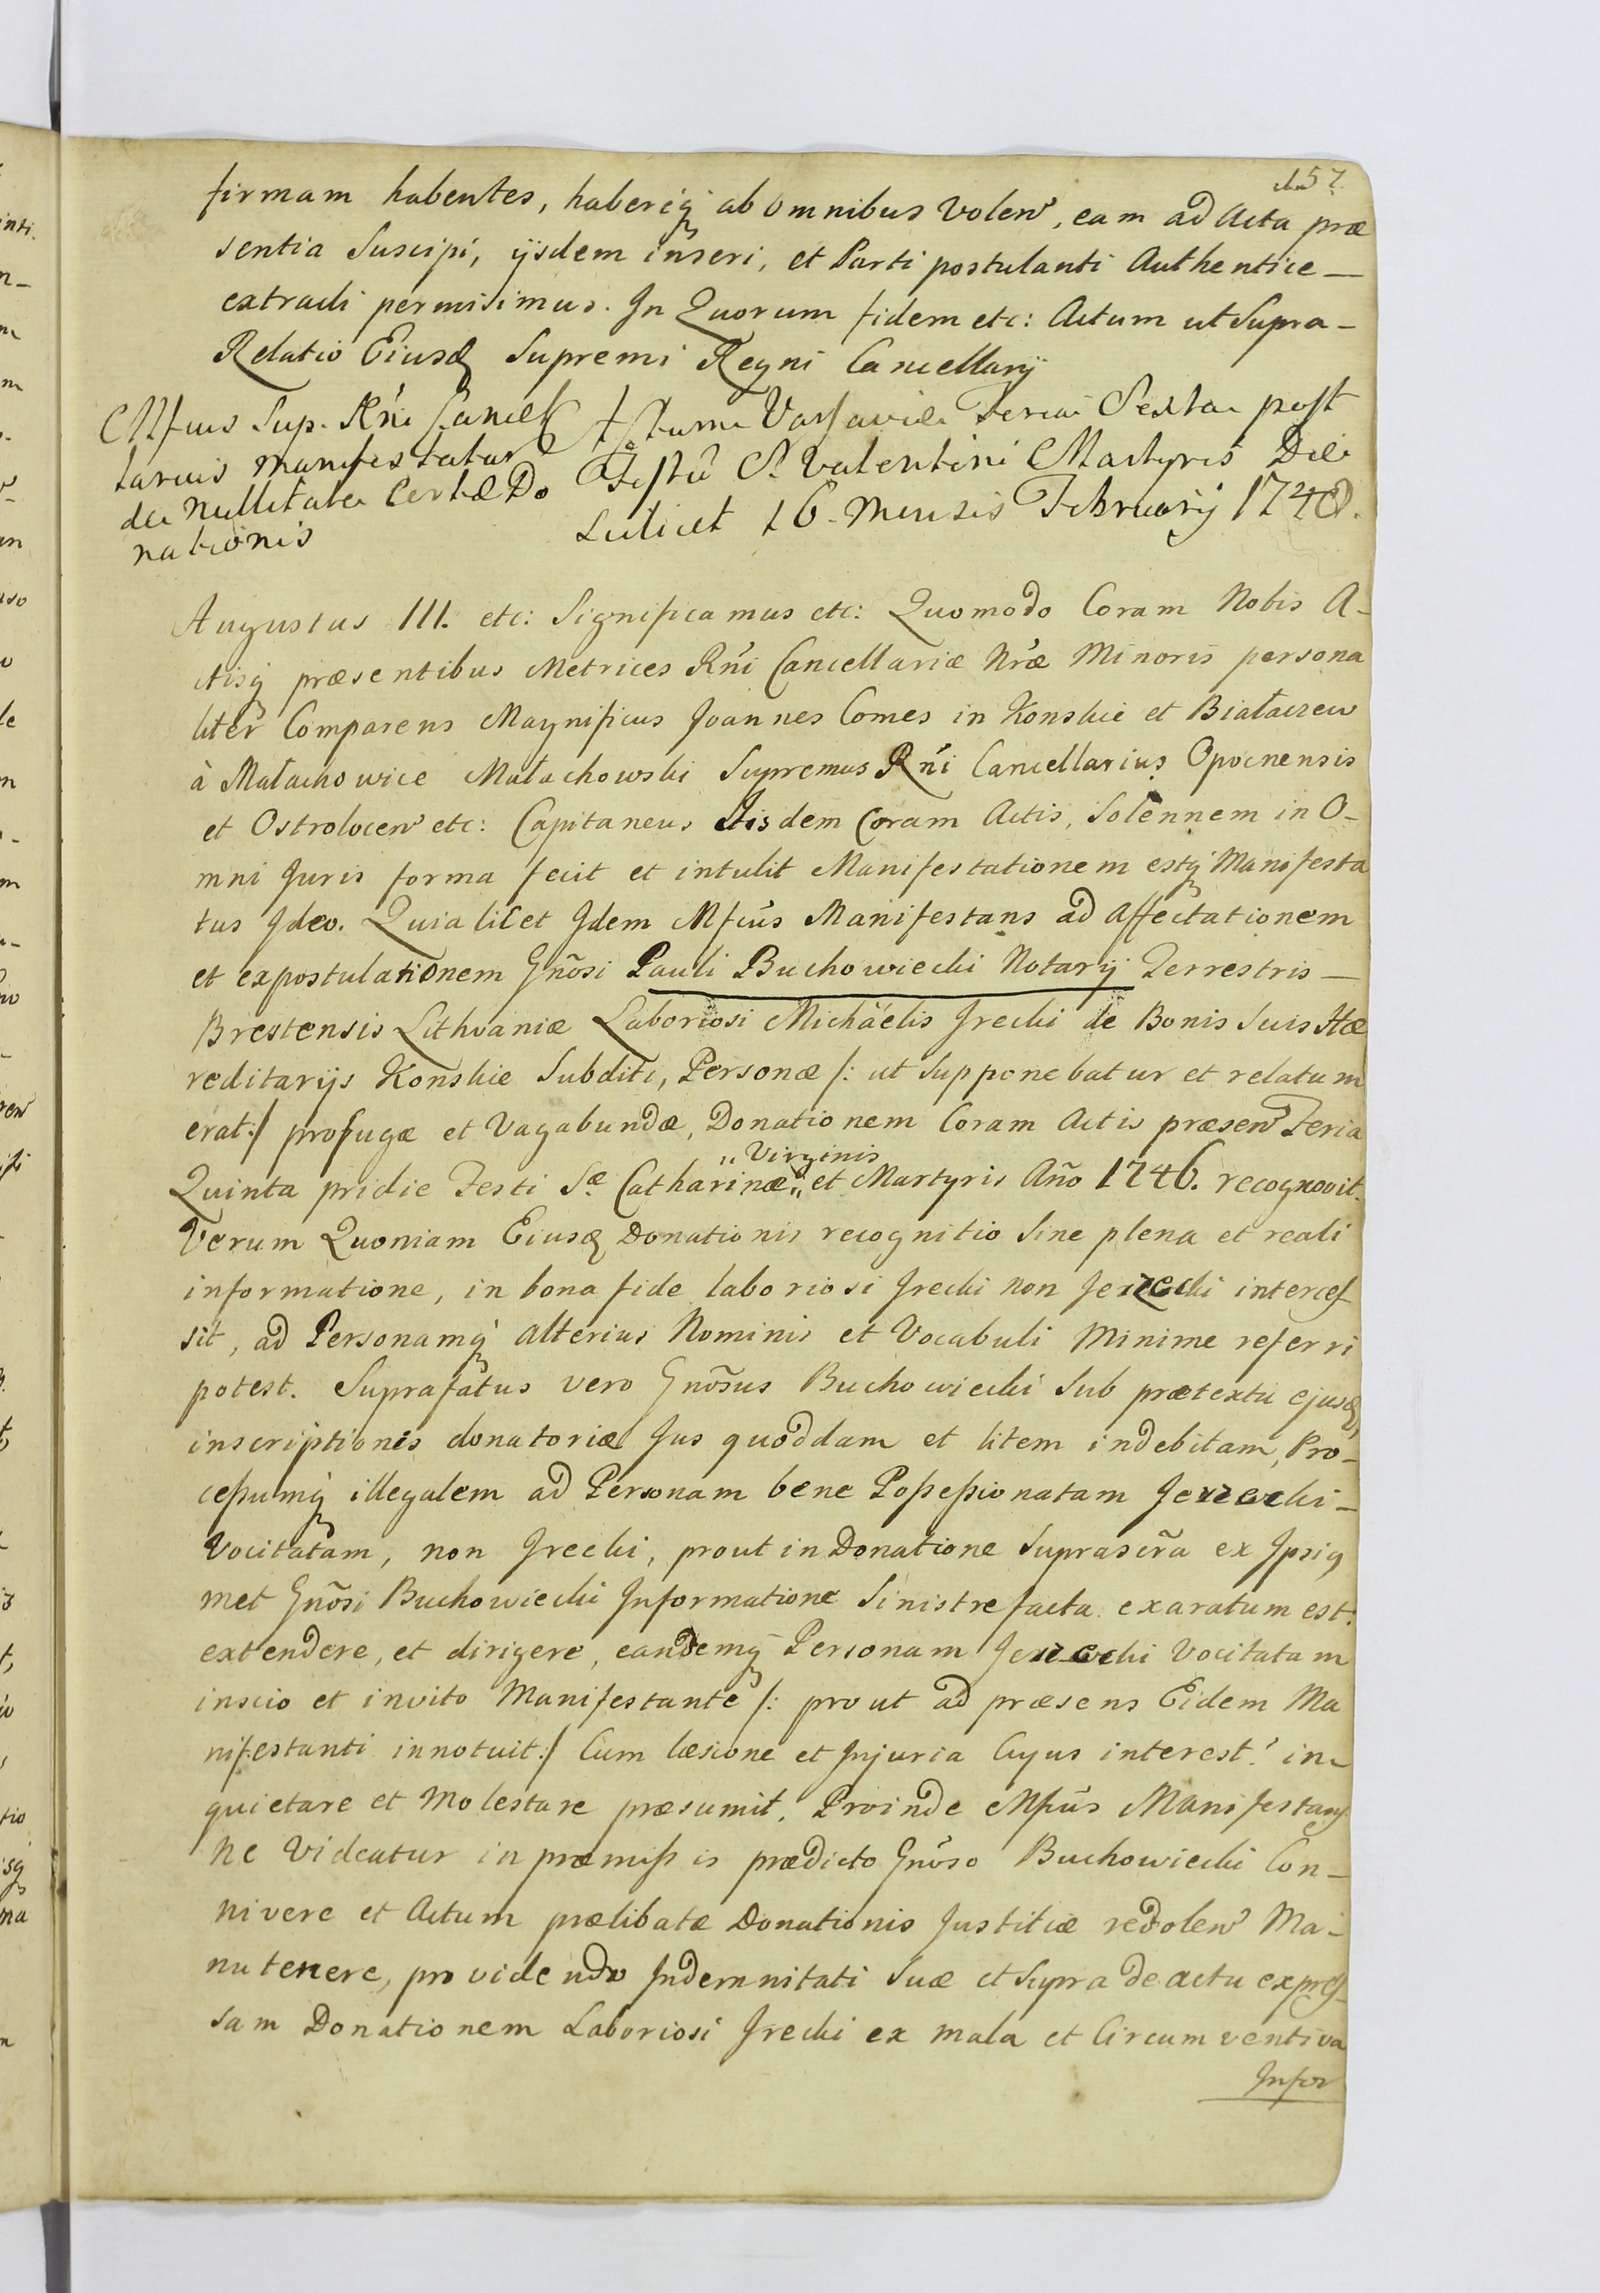 57.
firmam habentes, haberiq; ab omnibus volen̄, eam ad Acta præ
sentia Suscipi, ijsdem inseri, et Parti postulanti Authentice —
extradi permisimus. In Quorum fidem etc: Actum ut Supra —
Relatio Eiusd Supremi Regni Cancellarij
Mfcus Sup. Rńi Cancel
larius manifestatur
de Nullitate Certæ Do
nationis
Actum Varsaviæ Feria Sexta post
Festū S. Valentini Martyris Die
Scilicet 16. Mensis Februarij 1748.
Augustus III. etc: Significamus etc: Quomodo Coram Nobis A-
ctisq; præsentibus Metrices Rńi Cancellariæ Nræ Minoris persona
liter Comparens Magnificus Joannes Comes in Konskie et Białaczew
à Małachowice Małachowski Supremus Rńi Cancellarius Opocnensis
et Ostrolocen̄ etc: Capitaneus Iisdem Coram Actis, Solennem in O-
mni Juris forma fecit et intulit Manifestationem estq; Manifesta
tus Ideo. Quia licet Idem Mfcus Manifestans ad Affectationem
et expostulationem Gnōsi Pauli Buchowiecki Notarij Terrestris —
Brestensis Lithvaniæ Laboriosi Michaëlis Jrecki de Bonis Suis Hæ
reditarijs Konskie Subditi, Personæ /: ut supponebatur et relatum
erat:/ profugæ et Vagabundæ, Donationem Coram Actis præsen̄ Feria
Quinta pridie Festi Sæ Catharinæ „ Virginis „ et Martyris Año 1746. recognovit.
Verum Quoniam Eiusd Donationis recognitio Sine plena et reali
informatione, in bona fide laboriosi Jrecki non Jerzecki interces
sit, ad Personamq; alterius Nominis et Vocabuli Minime referri
potest. Suprafatus vero Gnōsus Buchowiecki Sub prætextu ejusd,
inscriptionis donatoriæ Jus quoddam et litem indebitam, Pro-
cessumq; illegalem ad Personam bene Possessionatam Jerzecki —
Vocitatam, non Jrecki, prout in Donatione Suprascr̃a ex Ipsiq
met Gnōsi Buchowiecki Informatione Sinistre facta exaratum est.
extendere, et dirigere, eandemq; Personam Jerzecki Vocitatam
inscio et invito Manifestante /: prout ad præsens Eidem Ma
nifestanti innotuit:/ Cum læsione et Injuria Cujus interest: in-
quietare et Molestare præsumit. Proinde Mfcus Manifestans
ne Videatur in præmissis prædicto Gnōso Buchowiecki Con-
nivere et Actum prælibatæ Donationis Justitiæ redolen̄ Ma-
nutenere, providendo Indemnitati Suæ et Supra de actu expres-
sam Donationem Laboriosi Jrecki ex mala et Circumventiva
Infor